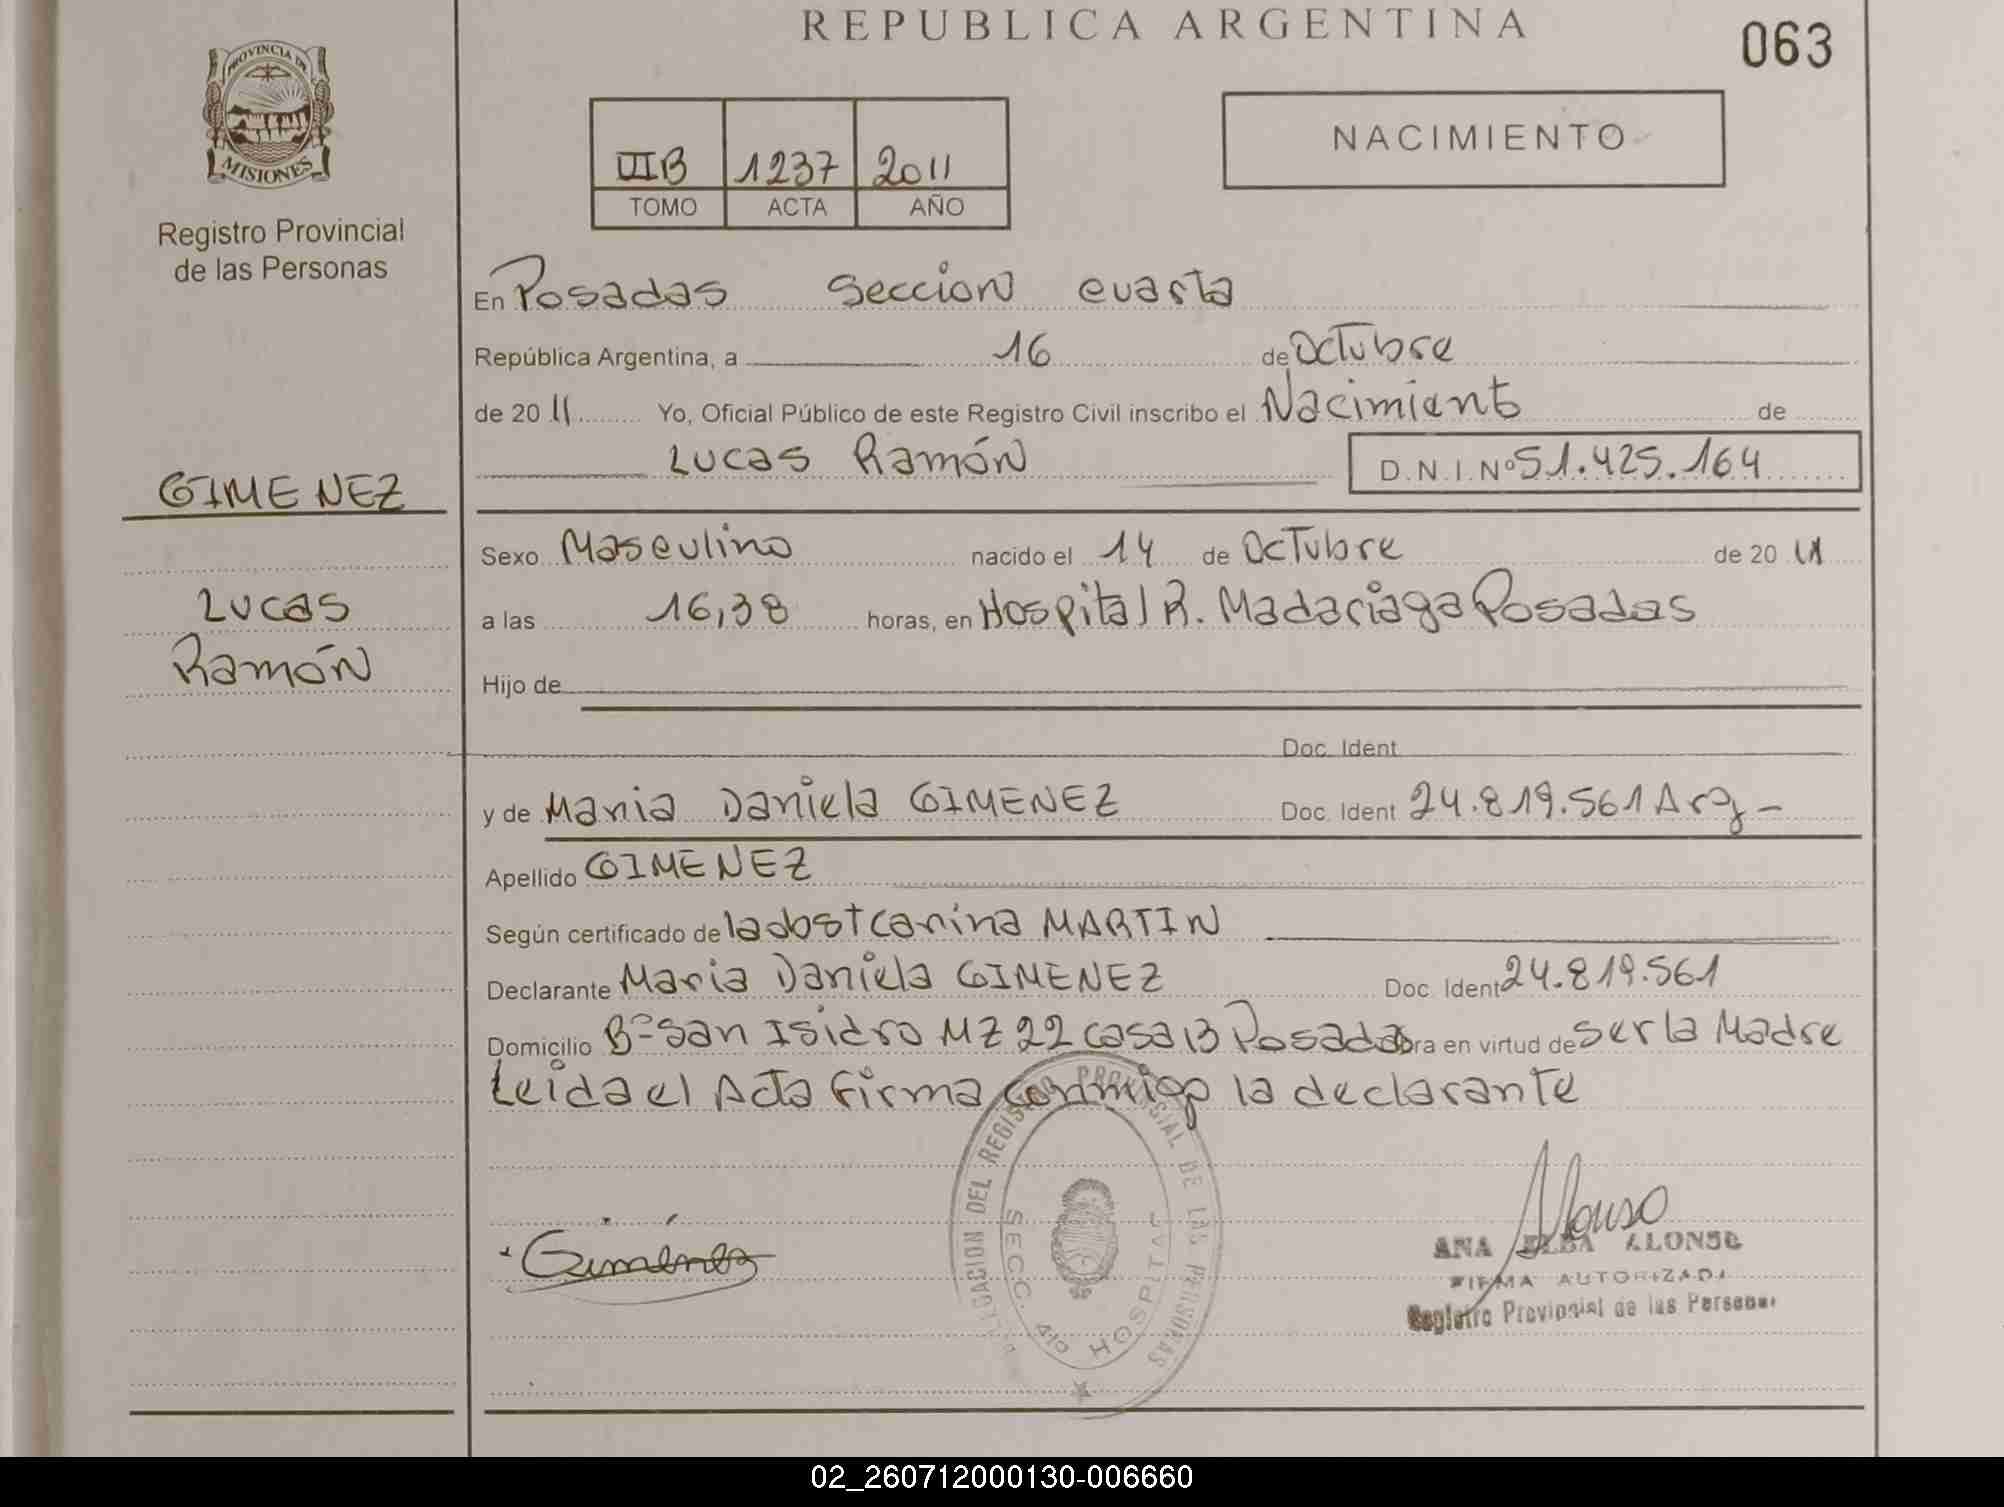 REPUBLICA ARGENTINA
063
PROVINCIA DE
MISIONES
Registro Provincial
de las Personas
IIB 1237 2011
TOMO ACTA AÑO
NACIMIENTO
En Posadas Seccion cuarta
República Argentina, a 16 de Octubre
de 20 11 Yo, Oficial Público de este Registro Civil inscribo el Nacimiento de
Lucas Ramón D.N.I.Nº 51.425.164
GIMENEZ
Lucas
Ramón
Sexo Masculino nacido el 14 de Octubre de 20 11
a las 16,38 horas, en Hospital R. Madariaga Posadas
Hijo de
Doc. Ident
y de Maria Daniela GIMENEZ Doc. Ident 24.819.561 Arg -
Apellido GIMENEZ
Según certificado de la obst carina MARTIN
Declarante Maria Daniela GIMENEZ Doc. Ident 24.819.561
Domicilio Bº San Isidro MZ 22 casa 13 Posadas obra en virtud de ser la Madre
Leida el Acta firma conmigo la declarante
DELEGACION DEL REGISTRO PROVINCIAL DE LAS PERSONAS
SECC. 4ta HOSPITAL
Giménez
Alonso
ANA ELBA ALONSO
FIRMA AUTORIZADA
Registro Provincial de las Personas
02_260712000130-006660